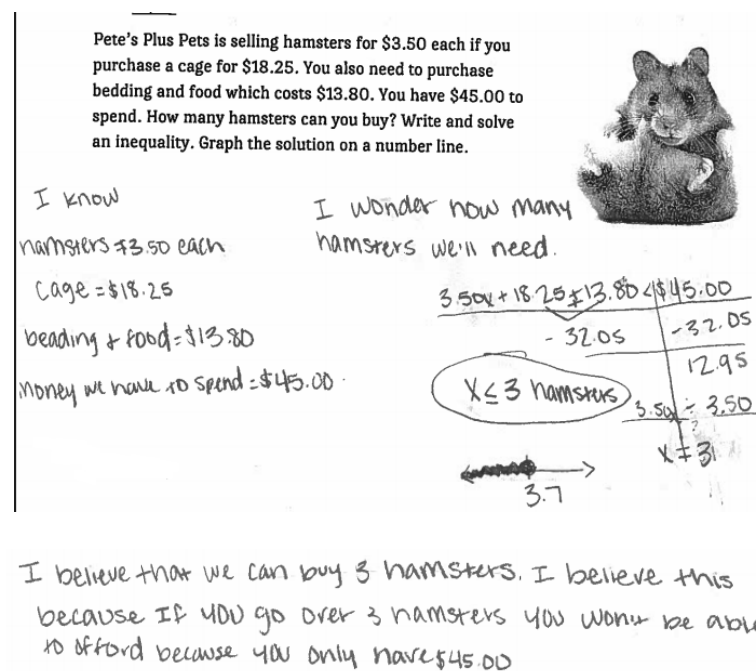 Pete's Plus Pets is selling hamsters for $3.50 each if you
purchase a cage for $18.25. You also need to purchase
bedding and food which costs $13.80. You have $45.00 to
spend. How many hamsters can you buy? Write and solve
an inequality. Graph the solution on a number line.
I know
hamsters $3.50 each
Cage = $18.25
beading & food = $13.80
Money we have to spend = $45.00
I wonder how many
hamsters we'll need.
3.50x + 18.25 + 13.80 < $45.00
- 32.05 -32.05
12.95
X ≤ 3 hamsters
3.50x ÷ 3.50
x 3
3.7
I believe that we can buy 3 hamsters. I believe this
because If you go over 3 hamsters you won't be able
to afford because you only have $45.00